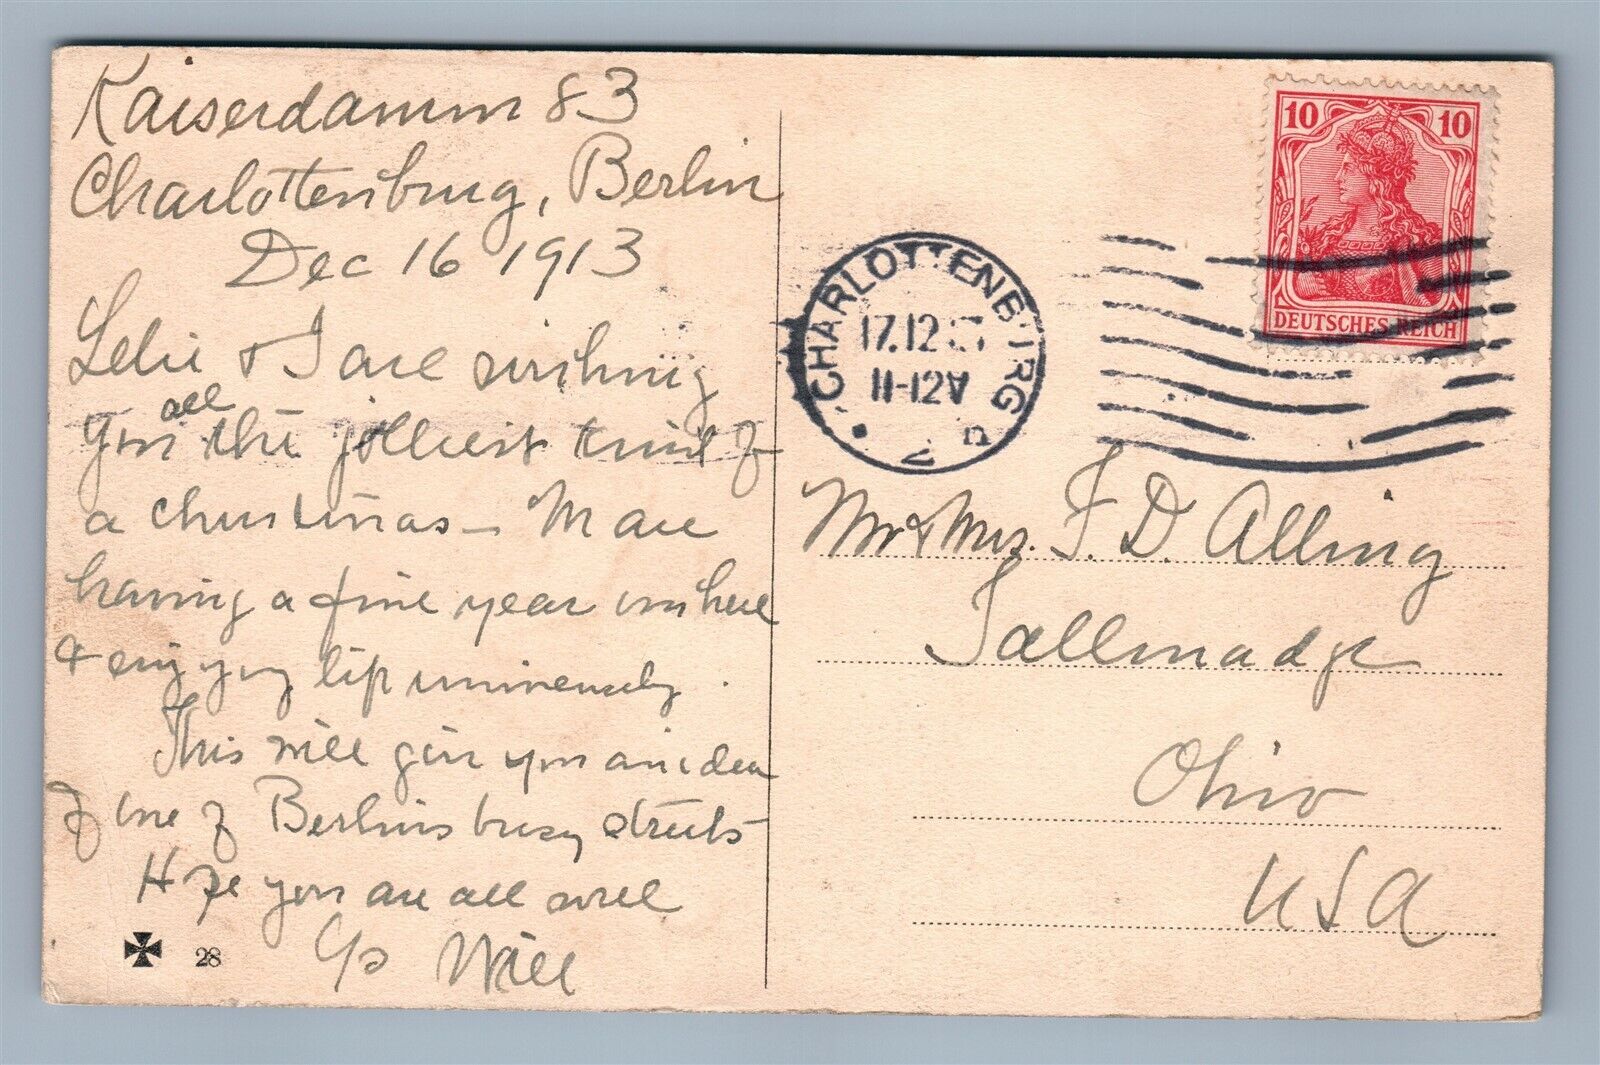 Kaiserdamm 83
Charlottenburg, Berlin
Dec 16 1913
& I are wishing
you all the jolliest kind of
a Christmas – We are
having a fine year over here
& enjoying life immensely.
This will give you an idea
of one of Berlins busy streets
Hope you are all well
Yrs Will
28
CHARLOTTENBURG
17.12
11-12V
2
10 10
DEUTSCHES REICH
Mr & Mrs. F. D. Alling
Tallmadge
Ohio
USA